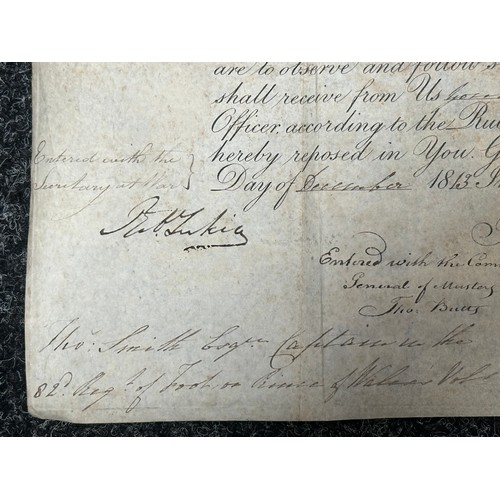 are to observe and follow
shall receive from Us
Officer, according to the Rul
hereby reposed in You. G
Day of December 1813.
Entered with the
Secretary at War
Entered with the Com
General of Musters
Tho. Butts
Tho: Smith Esqre Captain in the
82d. Regt. of Foot or Prince of Wales's Vol